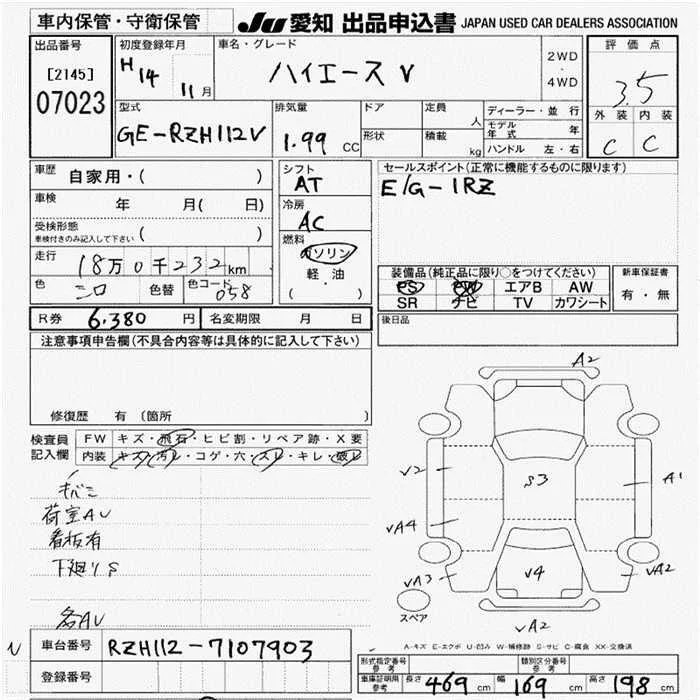 車内保管・守衛保管 JU 愛知 出品申込書 JAPAN USED CAR DEALERS ASSOCIATION
出品番号 [2145] 07023
初度登録年月 H 14 11月
車名・グレード ハイエースV
2WD・4WD
評価点 3.5
外装 内装
C C
型式 GE-RZH112V
排気量 1.99 CC
ドア 形状
定員 人 積載 kg
ディーラー・並行
モデル年式 年
ハンドル 左・右
車歴 自家用・( )
車検 年 月( 日)
受検形態 車検付きのみ記入して下さい ( )
走行 18万0千232km
色 シロ 色替 色コード 058
シフト AT
冷房 AC
燃料 ガソリン 軽・油 ( )
セールスポイント(正常に機能するものに限ります)
E/G-1RZ
装備品(純正品に限り○をつけてください)
PS PW エアB AW
SR ナビ TV カワシート
新車保証書 有・無
後日品
R券 6,380 円 名変期限 月 日
注意事項申告欄(不具合内容等は具体的に記入して下さい)
修復歴 有 〔箇所 〕
検査員記入欄
FW キズ・飛石・ヒビ割・リペア跡・X要
内装 キズ・汚レ・コゲ・穴・スレ・キレ・破レ
荷室AU
看板有
下廻りS
各AU
A2
V2
S3
A1
VA4
VA3
V4
VA2
VA2
スペア
A-キズ E-エクボ U-凹み W-補修跡 S-サビ C-腐食 XX-交換済
N 車台番号 RZH112-7107903
登録番号
形式指定番号 参考 類別区分番号 参考
車庫証明用 参考 長さ 469 cm 幅 169 cm 高さ 198 cm